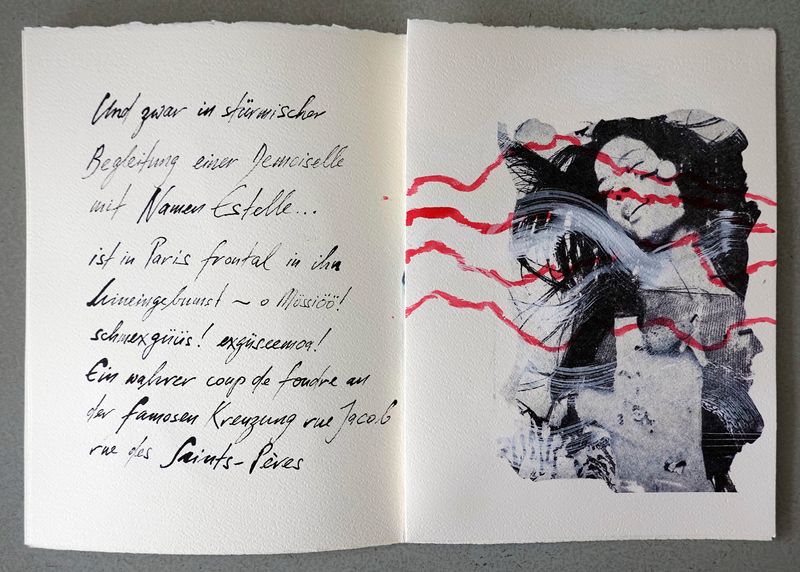 Und zwar in stürmischer
Begleitung einer Demoiselle
mit Namen Estelle...
ist in Paris frontal in ihn
hineingebumst ~ o Mössiöö!
schmexgüüs! exgüseemoa!
Ein wahrer coup de foudre an
der famosen Kreuzung rue Jacob
rue des Saints-Pères